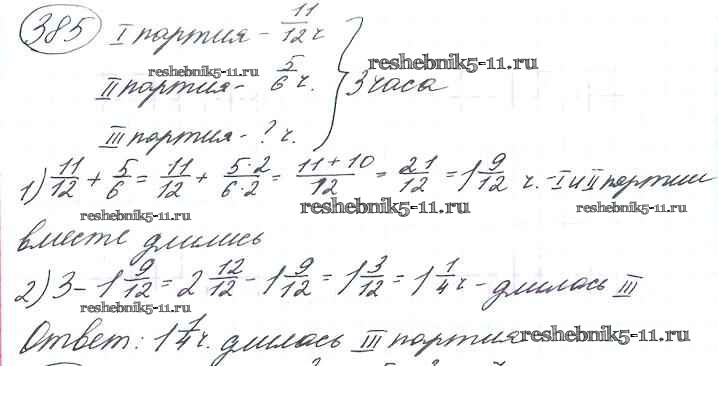 385 I партия - 11/12 ч
reshebnik5-11.ru
reshebnik5-11.ru
II партия - 5/6 ч. } 3 часа
III партия - ? ч.
1) 11/12 + 5/6 = 11/12 + 5·2/6·2 = 11+10/12 = 21/12 = 1 9/12 ч. - I и II партии
reshebnik5-11.ru reshebnik5-11.ru reshebnik5-11.ru
вместе длились
2) 3 - 1 9/12 = 2 12/12 - 1 9/12 = 1 3/12 = 1 1/4 ч - длилась III
reshebnik5-11.ru
Ответ: 1 1/4 ч. длилась III партия
reshebnik5-11.ru